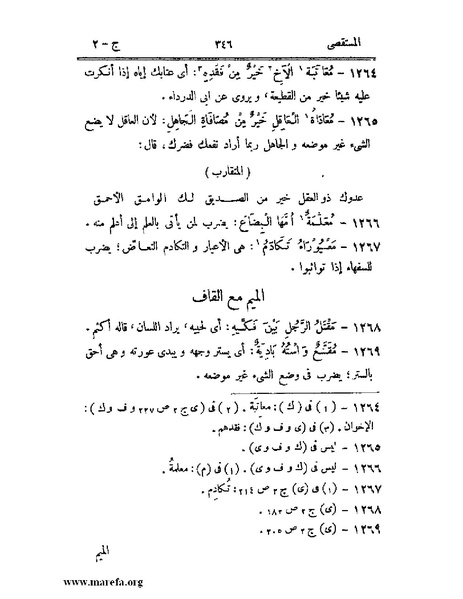 المستقصى ٣٤٦ ج – ٢
١٢٦٤ – مُعَاتَبَة ¹ الْأَخِ ² خَيْرٌ مِنْ فَقْدِهِ ³: أى عتابك إياه إذا أنكرت
عليه شيئا خير من القطيعة، و يروى عن ابى الدرداء .
١٢٦٥ – مُعَادَاةُ ¹ الْعَاقِلِ خَيْرٌ مِنْ مُصَافَاةِ الْجَاهِلِ: لأن العاقل لا يضع
الشىء غير موضعه و الجاهل ربما أراد نفعك فضرك، قال:
(المتقارب)
عدوك ذو العقل خير من الصديق لك الوامق الأحمق
١٢٦٦ – مُعَلِّمَةٌ ¹ أُمَّهَا الْبِضَاعَ: يضرب لمن يأتى بالعلم إلى أعلم منه .
١٢٦٧ – مَعْيُورَاءُ تَكَادَمُ ¹: هى الأعيار و التكادم التعاض؛ يضرب
للسفهاء إذا تواثبوا .
الميم مع القاف
١٢٦٨ – مَقْتَلُ الرَّجُلِ بَيْنَ فَكَّيْهِ: أى لحييه، يراد اللسان، قاله أكثم .
١٢٦٩ – مُقَنَّعٌ وَ اسْتُهُ بَادِيَةٌ: أى يستر وجهه و يبدى عورته و هى أحق
بالستر؛ يضرب فى وضع الشىء غير موضعه .
١٢٦٤ – (١) فى (ك): معاتبَة . (٢) فى (ى ج ٢ ص ٢٢٧ و ف و ك):
الإخوان . (٣) فى (ى و ف و ك): فقدهم .
١٢٦٥ – ليس فى (ك و ف و ى) .
١٢٦٦ – ليس فى (ك و ف و ى) . (١) فى (م): معلمةُ .
١٢٦٧ – (١) فى (ى) ج ٢ ص ٢١٤: تُكادِم .
١٢٦٨ – (ى) ج ٢ ص ١٨٢ .
١٢٦٩ – (ى) ج ٢ ص ٢٠٥ .
الميم
www.marefa.org